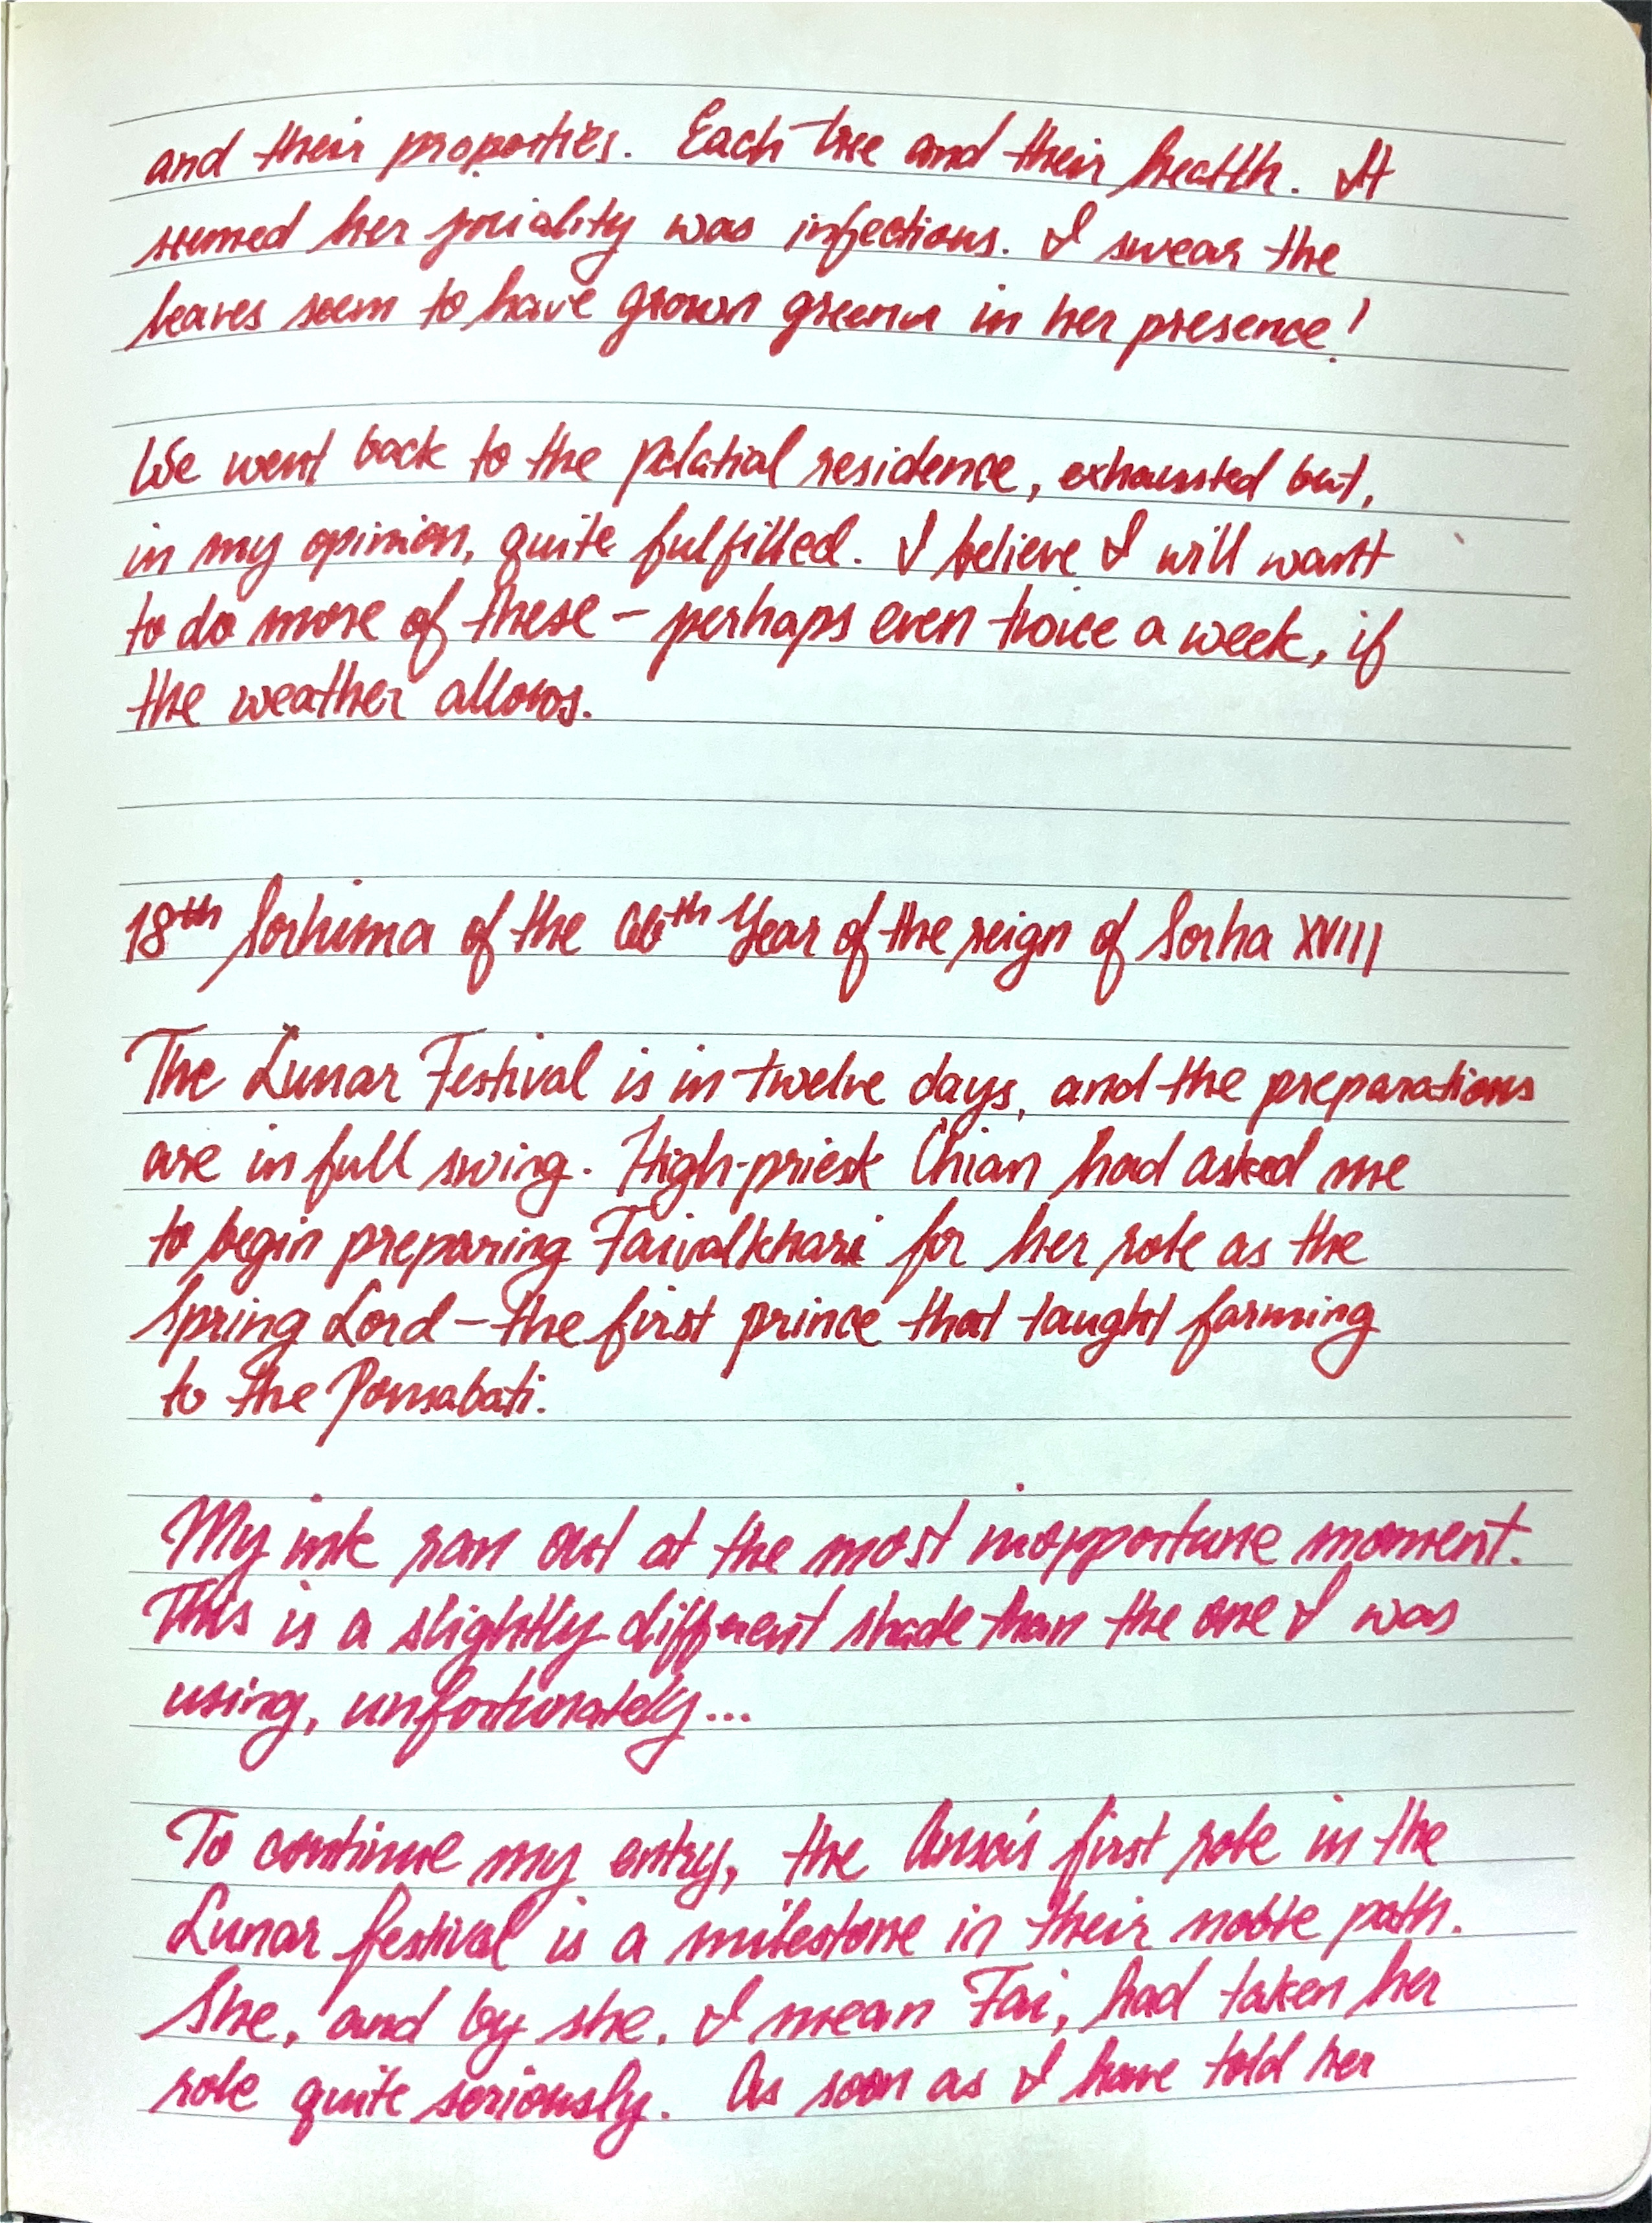 and their properties. Each tree and their health. It
seemed her joviality was infectious. I swear the
leaves seem to have grown greener in her presence!
We went back to the palatial residence, exhausted but,
in my opinion, quite fulfilled. I believe I will want
to do more of these – perhaps even twice a week, if
the weather allows.
18th Sorhima of the 66th Year of the reign of Sorha XVIII
The Lunar Festival is in twelve days, and the preparations
are in full swing. High-priest Chian had asked me
to begin preparing Faivalkhari for her role as the
Spring Lord – the first prince that taught farming
to the Ponsabati.
My ink ran out at the most inopportune moment.
This is a slightly different shade than the one I was
using, unfortunately...
To continue my entry, the Ansa's first role in the
Lunar festival is a milestone in their noble path.
She, and by she, I mean Fai, had taken her
role quite seriously. As soon as I have told her